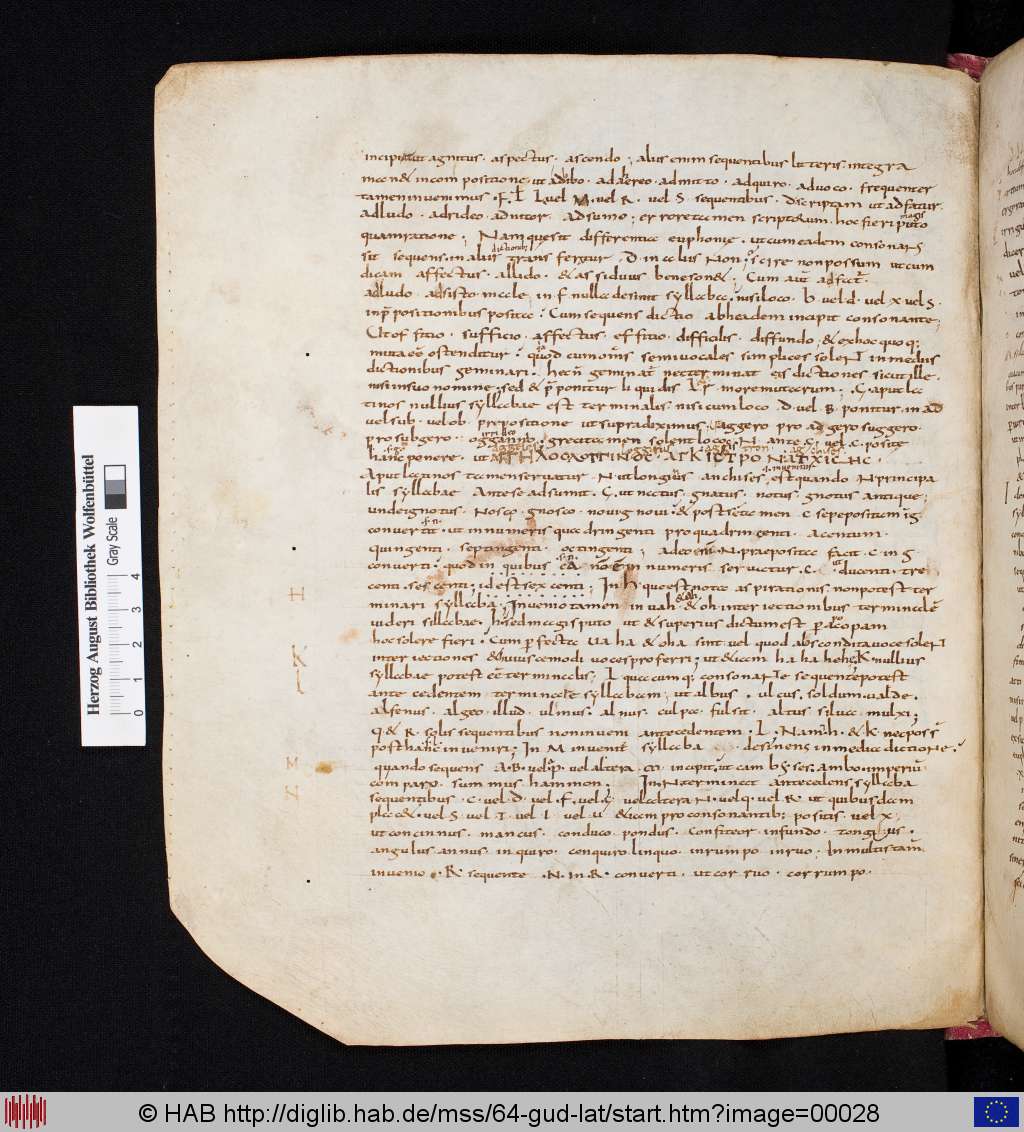 incipit ut agnitus · aspectus · ascendo ; aliis enim sequentibus litteris integra
manendi in compositione ut adbibo · adhereo · admitto · adquiro · advoco · frequenter
tamen invenimus · F · L vel N · vel R · vel S sequentibus · D scriptam ut adfatur
adludo · adrideo · adnitor · adsumo ; errore tamen scriptorum hoc fieri puto magis
quam ratione ; Nam que sit differentia euphonie · ut cum eadem consonans
sit sequens in aliis dictionib; transfergtur · D · in aliis non ; scire non possum ut cum
dicam affectus · allido · & assiduus bene son& ; Cum aut adfact
adludo · adsisto male · in F nulla desinit syllaba nisi loco · b vel d · vel x vel S ·
in ppositionibus posita ; Cum sequens dictio ab headem incipit consonante ;
Ut officio · sufficio · affectus · efficio · difficilis · diffundo ; & ex hoc quoq ;
muta ee ostenditur ; quod cum oms semivocales simplices solent in mediis
dictionibus geminari · hec n geminat nec terminat eis dictiones sicut ille
nisi in suo nomine ; sed & pponitur liquidis l r more mutarum ; G aput la
tinos nullius syllabae est terminalis nisi cum loco · D · vel B · ponitur in ad
vel sub · vel ob prepositione ut supra diximus ; aggero pro adgero suggero ·
pro subgero · oggannio · greci tamen solent loco N · ante G · vel C · posite
hanc ponere · ut
Aput latinos tamen servatur N · ut longius anchises ; est quando N principa
lis syllabae Ante se adsumit · G · ut natus · gnatus · notus · gnotus antique ;
unde ignotus · Nosco · gnosco · novi gnovi & post se tamen · C sepe positam in g
convertit · ut in numeris quadringenti pro quadrincenti · a centum ·
quingenti · septingenti · octingenti ; adeo enim N praeposita facit · C · in G
converti · quod in quibus ea non est in numeris servatur · C · ut ducenti · tre
centi · sescenti ; id est sexcenti ; In h que est nota aspirationis · non potest ter
minari syllaba ; Invenio tamen in vah & ah & oh interiectionibus terminale
videri sillabae · h · sed magis puto ut & superius dictum est p apocopam
hoc solere fieri · Cum pfecta vaha & oha sint vel quod abscondita voce solent
interiectiones & huiuscemodi voces proferri ; ut & iam ha ha hehe K nullius
syllabae potest ee terminalis ; L quacumq; consonante sequente potest
antecedentem terminare syllabam ; ut albus · ulcus · soldum valde ·
alfenus · algeo · illud · ulmus · alnus · culpa · fulsit · altus · silva · mulxi ;
q & R solis sequentibus non inveni antecedentem · L · Nam h · & K · nec poss
post hanc inveniri ; In M invenit syllaba desinens in media dictione ·
quando sequens A · B · vel P · vel altera · M · incipit ut cambyses · ambo · imperium
comparo · summus hammon · In N terminat antecedens syllaba
sequentibus · C · vel · D · vel · F · vel G · vel altera N · vel q · vel R · ut quibusdam
placet & vel S · vel · T · vel · I · vel · U · & iam pro consonantib; positis · vel x
ut concinnus · mancus · conduco · pondus · confiteor · infundo · tongius ·
angulus · annus · inquiro · conquiro · linquo · inrumpo · inruo · In multis tam
invenio · R sequente · N · in R · converti · ut corruo · corrumpo ·
H
K
L
M
N
Herzog August Bibliothek Wolfenbüttel
Gray Scale
0 1 2 3 4
© HAB http://diglib.hab.de/mss/64-gud-lat/start.htm?image=00028